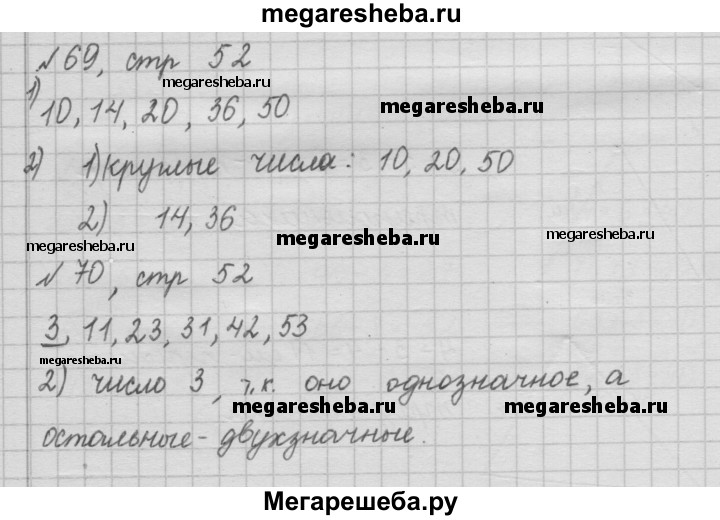 megaresheba.ru
№ 69, стр 52
megaresheba.ru
1)
10, 14, 20, 36, 50
megaresheba.ru
2) 1) круглые числа: 10, 20, 50
2) 14, 36
megaresheba.ru
megaresheba.ru
№ 70, стр 52
3, 11, 23, 31, 42, 53
megaresheba.ru
2) число 3, т.к. оно однозначное, а
megaresheba.ru
megaresheba.ru
остальные - двухзначные.
Мегарешеба.ру